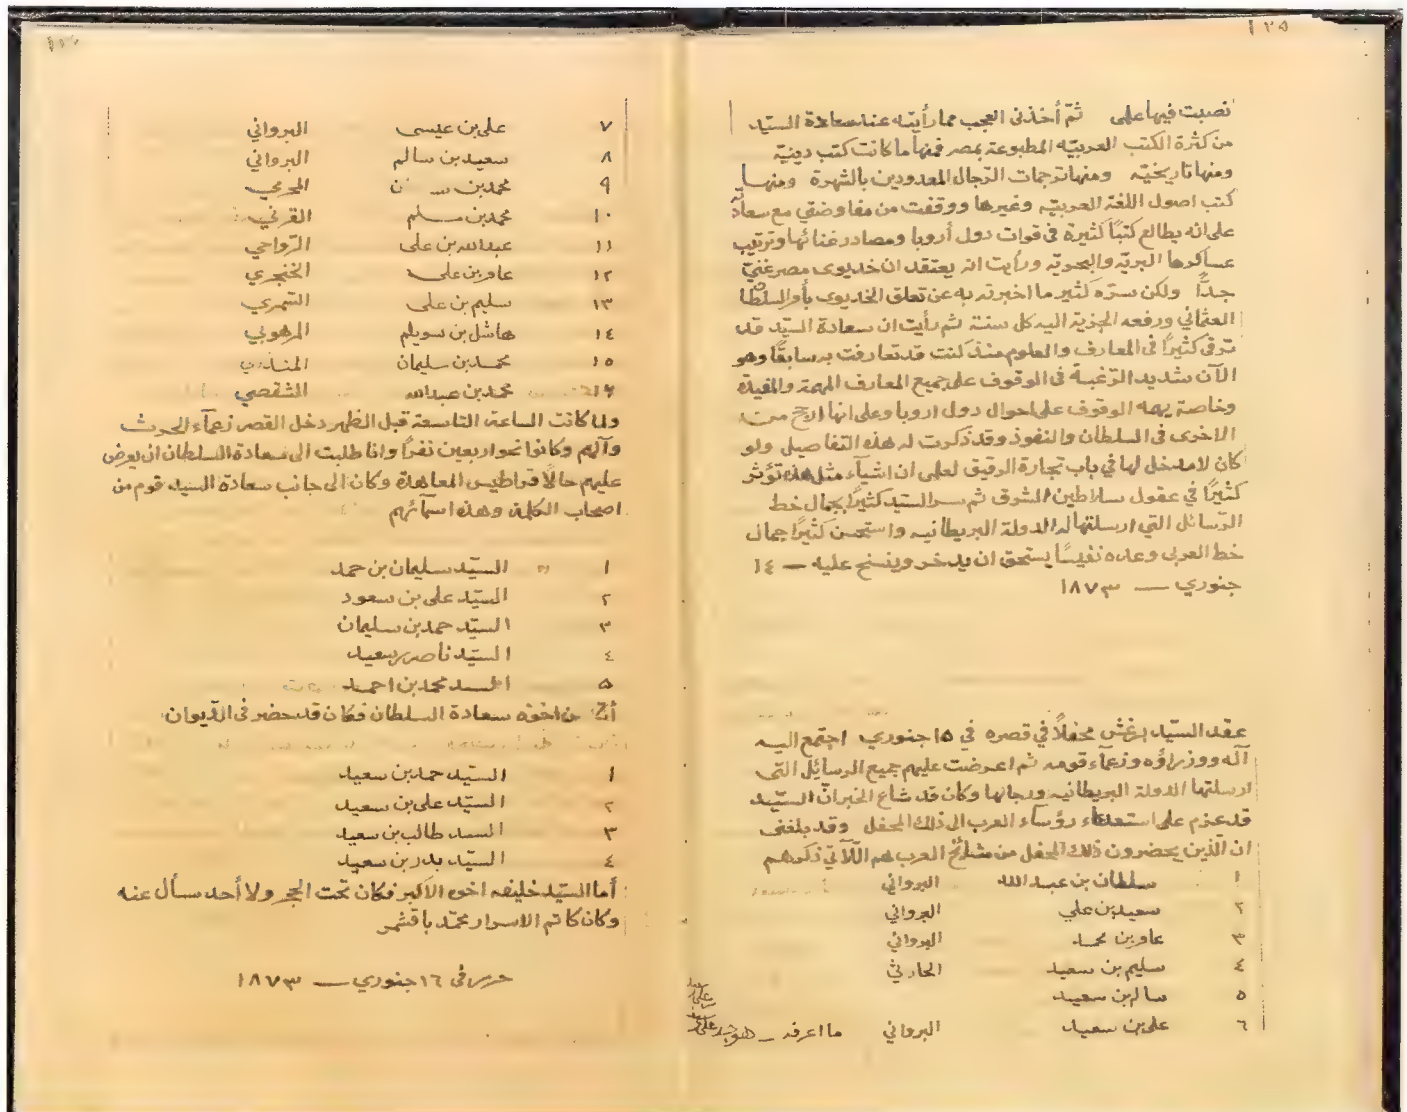 ١٢٥
نصبت فيها على ثم أخذنى العجب مما رأيته عند سعادة السيّد
من كثرة الكتب العربيّه المطبوعة بمصر فمنها ما كانت كتب دينيّة
ومنها تاريخيّه ومنها ترجمات الرّجال المعدودين بالشهرة ومنها
كتب اصول اللغة العربيّه وغيرها ووقفت من مفاوضتي مع سعادة
على انه يطالع كتبًا كثيرة فى قوات دول أروبا ومصادر غنائها وترتيب
عساكرها البريّه والبحريّه ورأيت انه يعتقد ان خديوى مصر غنيّ
جدًّا ولكن سرّه كثير ما اخبرته به عن تعلق الخديوى بأمر السلطان
العثماني ورفعه الجزية اليه كل سنة ثم رأيت ان سعادة السيّد قد
ترقى كثيرًا فى المعارف والعلوم منذ كنت قد تعارفت به سابقًا وهو
الآن شديد الرّغبة فى الوقوف على جميع المعارف المهمة والمفيدة
وخاصة يهمه الوقوف على احوال دول اروبا وعلى انها ارجح من
الاخرى فى السلطان والنفوذ وقد ذكرت له هذه التفاصيل ولو
كان لا مدخل لها في باب تجارة الرقيق لعلمى ان اشيآء مثل هذه تؤثر
كثيرًا في عقول سلاطين الشرق ثم سر السيّد كثيرًا بجمال خط
الرّسائل التي ارسلتها له الدولة البريطانيه واستحسن كثيرًا جمال
خط العربى وعده نفيسًا يستحق ان يدخر وينسخ عليه — ١٤
جنوري — ١٨٧٣
عقد السيّد برغش محفلًا في قصره في ١٥ جنوري اجتمع اليه
آله ووزراؤه وزعمآء قومه ثم اعرضت عليهم جميع الرسائل التى
ارسلتها الدولة البريطانيه ورجالها وكان قد شاع الخبر انّ السيّد
قد عزم على استدعاء رؤسآء العرب الى ذلك المحفل وقد بلغنى
ان الّذين يحضرون ذلك المحفل من مشائخ العرب هم اللّآتي ذكرهم
١ سلطان بن عبد الله البرواني
٢ سعيد بن علي البرواني
٣ عامر بن محمد البرواني
٤ سليم بن سعيد الحارثي
٥ سالم بن سعيد
٦ على بن سعيد البرواني ما اعرفه — هو
٧ على بن عيسى البرواني
٨ سعيد بن سالم البرواني
٩ محمد بن
١٠ محمد بن مسلم
١١ عبدالله بن على الرّواحي
١٢ عامر بن على الخنجري
١٣ سليم بن على الشمري
١٤ هاشل بن سويلم المرهوبي
١٥ محمد بن سليمان المنذري
١٦ محمد بن عبدالله الشقصي
ولما كانت الساعة التاسعة قبل الظهر دخل القصر زعمآء الحرث
وآلهم وكانوا نحو اربعين نفرًا وانا طلبت الى سعادة السلطان ان يعرض
عليهم حالًا قراطيس المعاهدة وكان الى جانب سعادة السيد قوم من
اصحاب الكلمة وهذه اسمآئهم
١ السيّد سليمان بن حمد
٢ السيّد على بن سعود
٣ السيّد حمد بن سليمان
٤ السيّد ناصر بن سعيد
٥ السيد محمد بن احمد
من اخوة سعادة السلطان فكان قد حضر فى الدّيوان
١ السيّد حمد بن سعيد
٢ السيّد على بن سعيد
٣ السيد طالب بن سعيد
٤ السيّد بدر بن سعيد
أما السيّد خليفه اخوه الأكبر فكان تحت الحجر ولا أحد سأل عنه
وكان كاتم الاسرار محمّد باقشمر
حرر فى ١٦ جنوري — ١٨٧٣